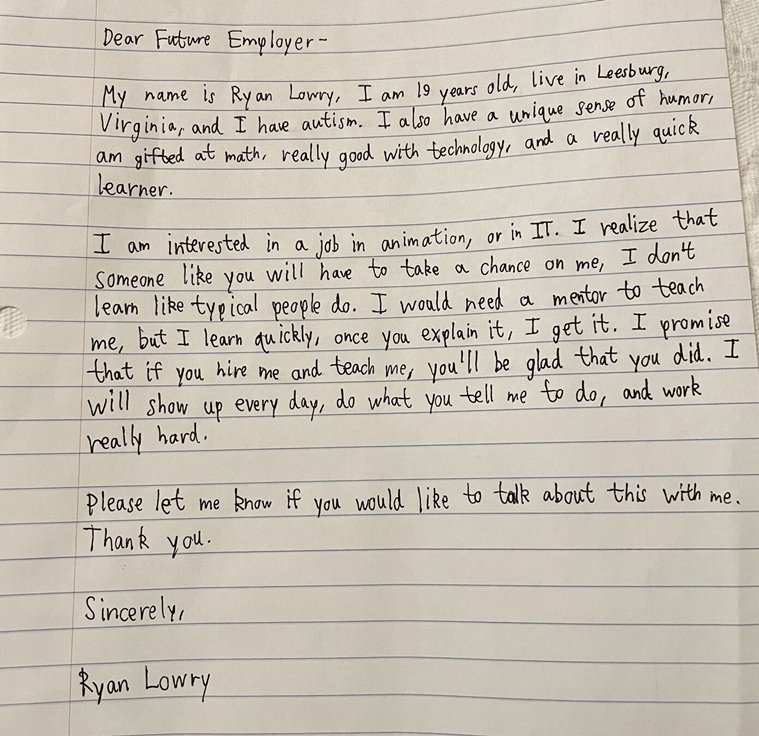 Dear Future Employer-
My name is Ryan Lowry, I am 19 years old, live in Leesburg,
Virginia, and I have autism. I also have a unique sense of humor,
am gifted at math, really good with technology, and a really quick
learner.
I am interested in a job in animation, or in IT. I realize that
someone like you will have to take a chance on me, I don't
learn like typical people do. I would need a mentor to teach
me, but I learn quickly, once you explain it, I get it. I promise
that if you hire me and teach me, you'll be glad that you did. I
will show up every day, do what you tell me to do, and work
really hard.
Please let me know if you would like to talk about this with me.
Thank you.
Sincerely,
Ryan Lowry